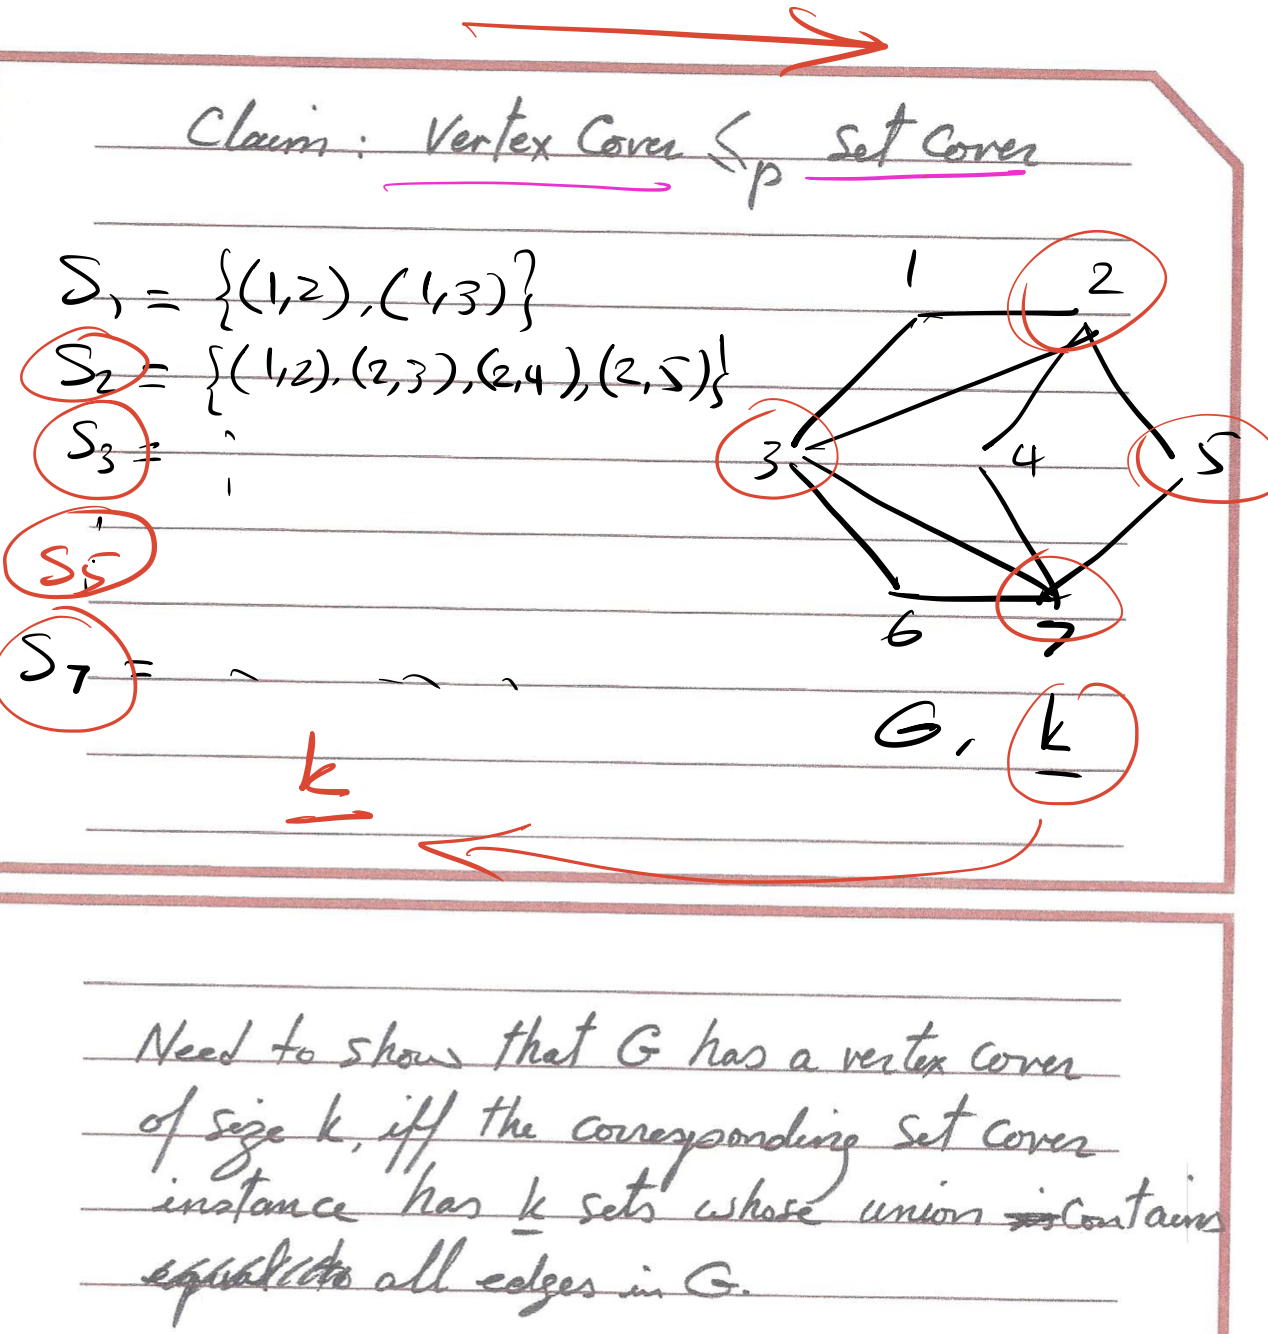 Claim: Vertex Cover ≤p Set Cover
S1 = {(1,2), (1,3)}
S2 = {(1,2), (2,3), (2,4), (2,5)}
S3 =
S5
S7 =
k
1
2
3
4
5
6
7
G, k
Need to show that G has a vertex cover
of size k, iff the corresponding set cover
instance has k sets whose union contains
all edges in G.